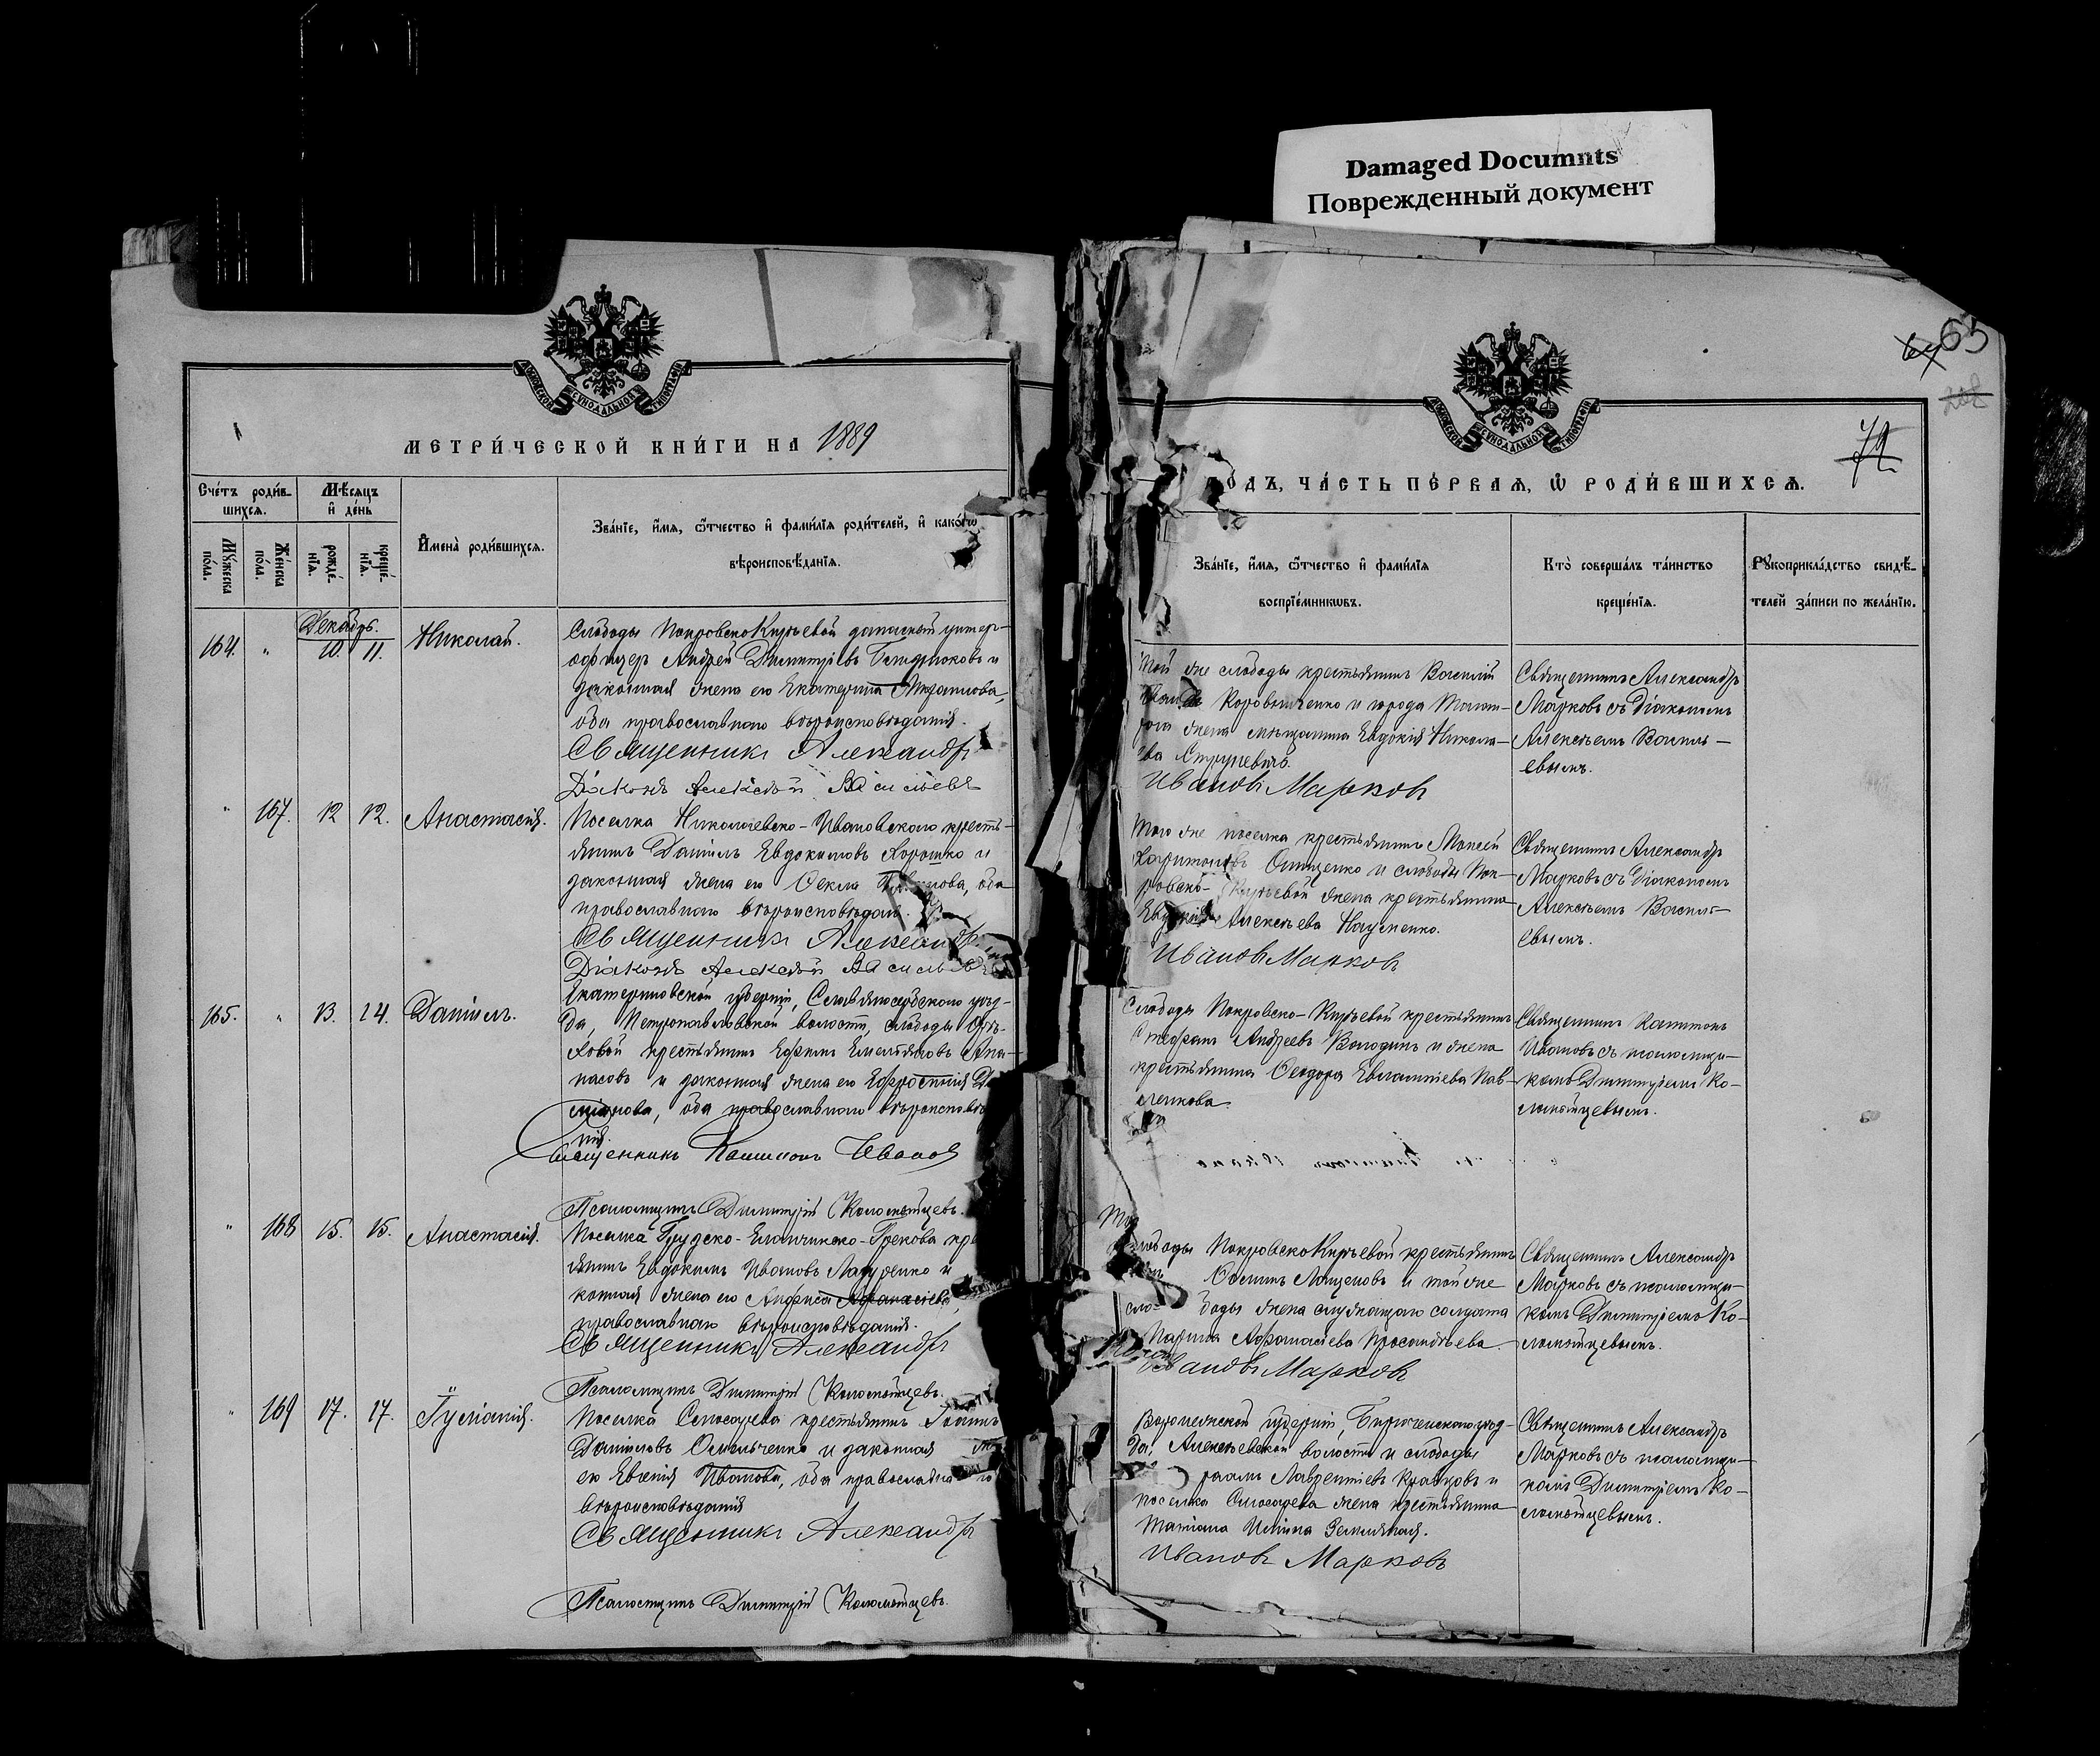 Damaged Documnts
Поврежденный документ
65
64
72
МОСКОВСКОЙ СѴНОДАЛЬНОЙ ТИПОГРАФІИ
МЕТРИ́ЧЕСКОЙ КНИ́ГИ НА 1889
Сче́тъ роди́в-
шихсѧ.
Мѣ́сѧцъ
и҆ де́нь
Мꙋ́жеска
по́ла.
Же́нска
по́ла.
рожде́-
нїѧ.
креще́-
нїѧ.
И҆мена̀ роди́вшихсѧ.
Зва́нїе, и҆́мѧ, ѻ҆́тчество и҆ фами́лїѧ роди́телей, и҆ како́гѡ
вѣроисповѣ́данїѧ.
Декабрь.
164. " 10. 11. Николай.
Слободы ПокровскоКирѣевой запасный унтер-
офицеръ Андрей Димитріевъ и
законная жена его Екатерина
оба православнаго вѣроисповѣданія.
Священникъ Александръ
Діаконъ Алексѣй Васильевъ
" 167. 12 12. Анастасія.
Поселка Николаевско-Ивановскаго кресть-
янинъ Даніилъ Евдокимовъ Хорошко и
законная жена его Ѳекла оба
православнаго вѣроисповѣдан.
Священникъ Александръ
Діаконъ Алексѣй Васильевъ
165. " 13. 14. Даніилъ.
Екатериновской губерніи, Славяносербскаго уѣз-
да, Петропавловской волости, слободы Орѣ-
ховой крестьянинъ Ефимъ Емельяновъ Апа-
насовъ и законная жена его Ефросинія
оба православнаго вѣроисповѣда
нія.
Священникъ Капитонъ Ивановъ
Псаломщикъ Димитрій Коломойцевъ.
" 168 15. 15. Анастасія.
Поселка Грудско-Еланчинско-Грекова кре
янинъ Евдокимъ Ивановъ Лазуренко и
конная жена его Анфиса Афанасіева,
православнаго вѣроисповѣданія.
Священникъ Александръ
Псаломщикъ Димитрій Коломойцевъ.
" 169 17. 17. Іуліанія.
Поселка Слюсарева крестьянинъ Іоаннъ
Даніиловъ Омельченко и законная
его Евгенія Иванова, оба православна го
вѣроисповѣданія
Священникъ Александръ
Псаломщикъ Димитрій Коломойцевъ.
МОСКОВСКОЙ СѴНОДАЛЬНОЙ ТИПОГРАФІИ
ОДЪ, ЧА́СТЬ ПЕ́РВАѦ, Ѡ҆ РОДИ́ВШИХСѦ.
Зва́нїе, и҆́мѧ, ѻ҆́тчество и҆ фами́лїѧ
воспрїе́мникѡвъ.
Кто̀ соверша́лъ та́инство
креще́нїѧ.
Рꙋкоприкла́дство свидѣ́-
телей за́писи по жела́нїю.
Той же слободы крестьянинъ Василій
Коровниченко и города Таган-
рога жена мѣщанина Евдокія Никола-
ева
Ивановъ Марковъ
Священникъ Александръ
Марковъ съ Діакономъ
Алексѣемъ Василь-
евымъ.
Того же поселка крестьянинъ Моисей
Харитоновъ Онищенко и слободы Пок-
ровско-Кирѣевой жена крестьянина
Евдокія Алексѣева Науменко.
Ивановъ Марковъ
Священникъ Александръ
Марковъ съ Діакономъ
Алексѣемъ Василь-
евымъ.
Слободы Покровско-Кирѣевой крестьянинъ
Стефанъ Андреевъ Володинъ и жена
крестьянина Ѳеодора Евлампіева Пав-
ленкова
Священникъ Капитонъ
Ивановъ съ псаломщи-
комъ Димитріемъ Ко-
ломойцевымъ.
слободы ПокровскоКирѣевой крестьянинъ
Лащеновъ и той же
сло- боды жена служащаго солдата
Марина Афанасіева
Ивановъ Марковъ
Священникъ Александръ
Марковъ съ псаломщи-
комъ Димитріемъ Ко-
ломойцевымъ.
Воронежской губерніи, Бирюченскаго уѣз-
да, Алексѣевской волости и слободы
Лаврентіевъ Кравцовъ и
поселка Слюсарева жена крестьянина
Татіана Ильина Земляная.
Ивановъ Марковъ
Священникъ Александръ
Марковъ съ псаломщи-
комъ Димитріемъ Ко-
ломойцевымъ.